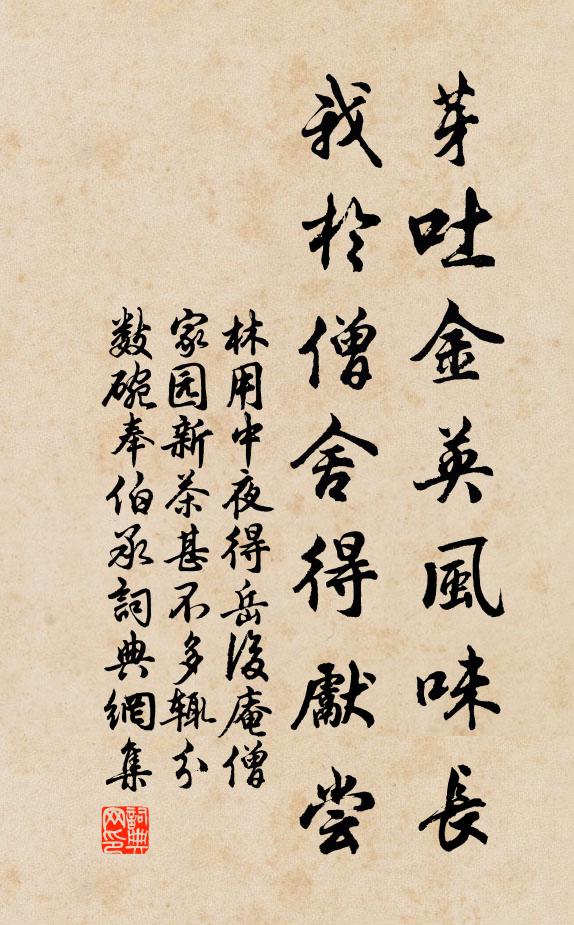 芽吐金英風味長
我於僧舍得獻尝
林用中夜得岳後庵僧
家园新茶甚不多辄分
数碗奉伯承詞典網集
詞典网印